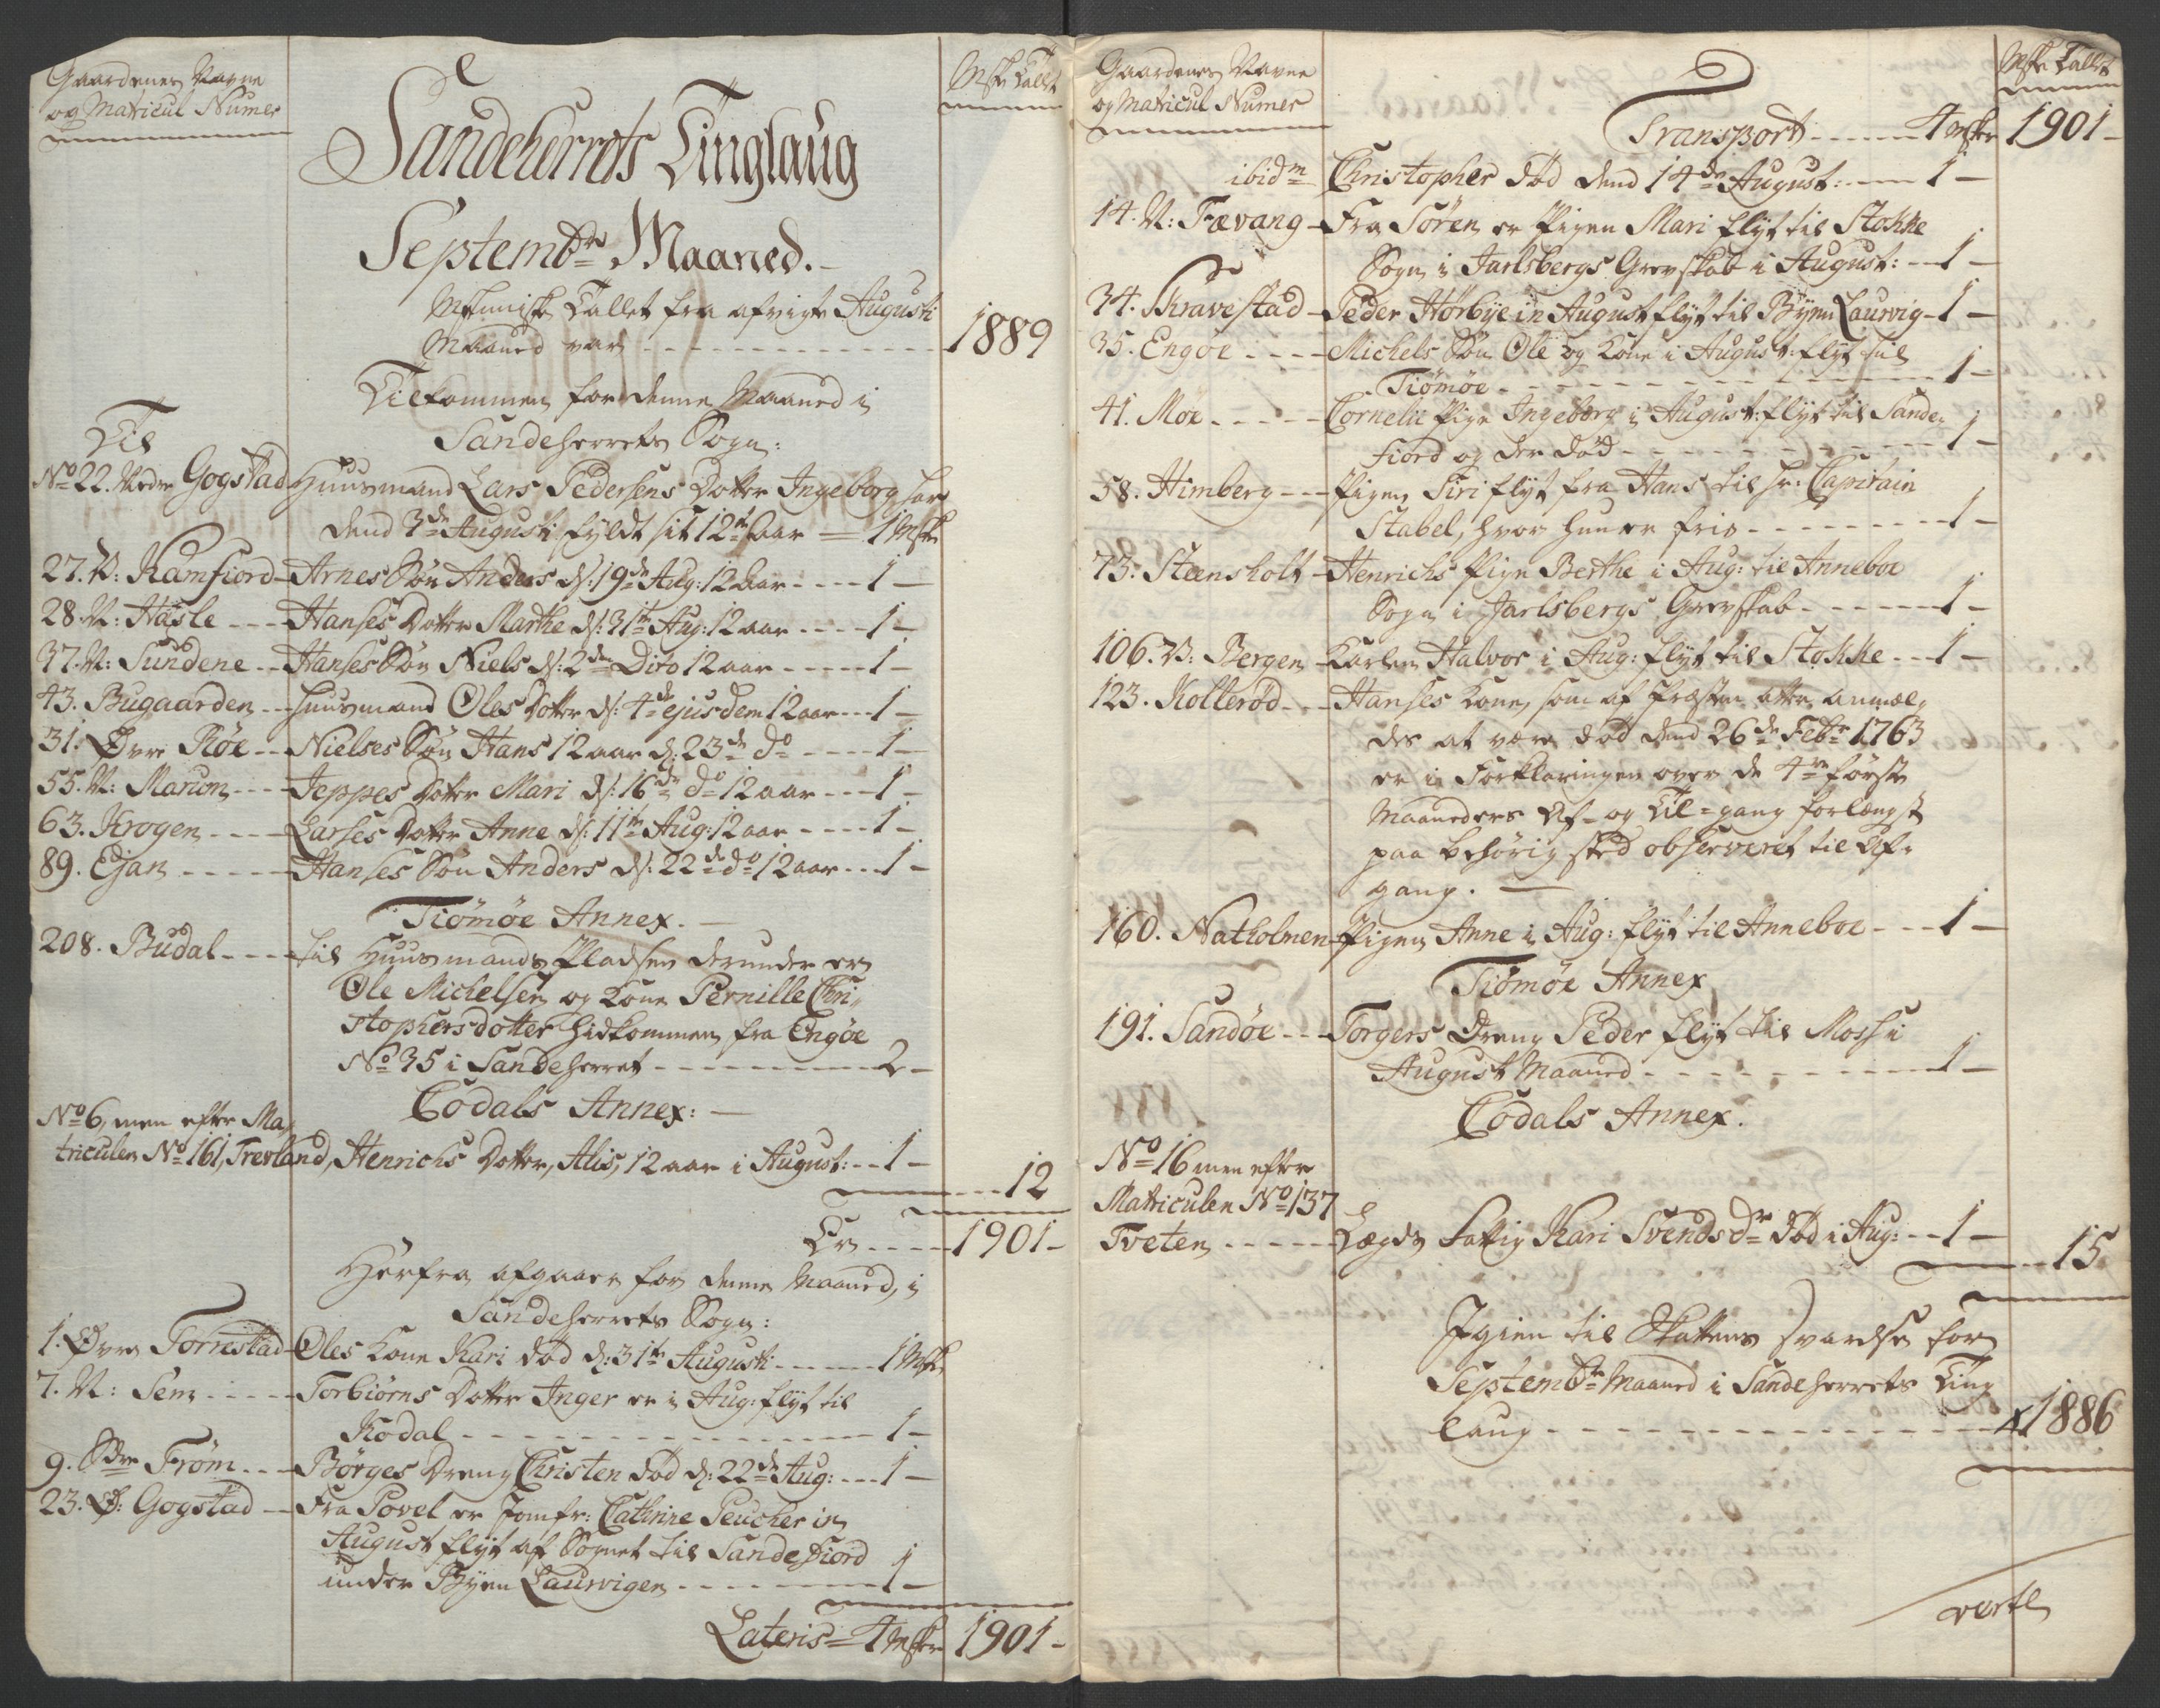 Gaardenes Navne
og Matricul Numer
Msk: Tallet
Sandeherrets Tinglaug
Septembr Maaned.
Menniske Tallet fra afvigte Augusti
Maaned var - - - 1889
Tilkommen for denne Maaned i
Sandeherrets Sogn:
Til
No 22. Nedre Gogstad Huusmand Lars Pedersens Dotter Ingeborg har
dend 3de Augusti fyldt sit 12te Aar — 1 Msk:
27. V: Kamfiord - Arnes Søn Anders d: 19de Aug: 12 aar - - - 1 -
28. N: Hasle - - - Hanses Dotter Marthe d: 31te Aug: 12 aar - - - 1 -
37. N: Sundene - - Hanses Søn Niels d: 2den Dito 12 aar - - - 1 -
43. Bugaarden - - Huusmand Oles Dotter d: 4de ejusdem 12 aar - - 1 -
31. Øvre Røe - - Nielses Søn Hans 12 aar d: 23de do - - - 1 -
55. N: Marum - - - Jeppes Dotter Mari d: 16de do 12 aar - - - 1 -
63. Krogen - - - Larses Dotter Anne d: 11te Aug: 12 aar - - - 1 -
89. Ejan - - - Hanses Søn Anders d: 22de do 12 aar - - - 1 -
Tiømøe Annex. -
208. Budal - - - til Huusmands Pladsen derunder er
Ole Michelsen og Kone Pernille Chri-
stophersdotter hidkommen fra Engøe
No 35 i Sandeherret - - - 2 -
Codals Annex: -
No 6, men efter Ma-
triculen No 161, Trevland, Henrichs Dotter, Alis, 12 aar i August: - - 1 -
- - - 12
Er - - - 1901 -
Herfra afgaaer for denne Maaned, i
Sandeherrets Sogn:
1. Øvre Tornstad - Oles Kone Kari død d: 31te Augusti - - - 1 Msk:
7. N: Sem - - - Torbiørns Dotter Inger er i Aug: flyt til
Kodal - - - 1 -
9. Sdre Frøm - - - Børges Dreng Christen død d: 22de Aug: - - - 1 -
23. Ø: Gogstad - Fra Povel er Jomfr: Cathrine Peucher in
August flyt af Sognet til Sandefiord
under Byen Laurvigen - - - 1 -
Lateris = 4 Msker 1901 -
Gaardenes Navne
og Matricul Numer
Msk: Tallet
Transport - - - 4 Msker 1901 -
ibidm Christopher død dend 14de August: - - 1 -
14. N: Fævang - Fra Søren er Pigen Mari flyt til Stokke
Sogn i Jarlsbergs Grevskab i August: - - 1 -
34. Skravestad - Peder Hørbye in August flyt til Byen Laurvig - 1 -
35. Engøe - - - Michels Søn Ole og Kone i August: flyt til
Tiømøe - - - 1 -
41. Moe - - - Cornelii Pige Ingeborg i August: flyt til Sande-
fiord og der død - - - 1 -
58. Himberg - - - Pigen Siri flyt fra Hans til hr: Capitain
Stabel, hvor hun er frie - - - 1 -
73. Steensholt - Henrichs Pige Berthe i Aug: til Anneboe
Sogn i Jarlsbergs Grevskab - - - 1 -
106. V: Bergen - Karlen Halvor i Aug: flyt til Stokke - - - 1 -
123. Kolterød - - - Hanses Kone, som af Præsten atter anmæl-
des at være død dend 26de Febr 1763
er i Forklaringen over de 4re første
Maaneders Af- og Til-gang forlængst
paa behørig sted observeret til Af-
gang. —
160. Natholmen - Pigen Anne i Aug: flyt til Anneboe - - - 1 -
Tiømøe Annex
191. Sandøe - - - Torgers Dreng Peder flyt til Moss i
August Maaned - - - 1 -
Codals Annex.
No 16 men efter
Matriculen No 137
Tveten - - - Lægds Fattig Kari Svendsdr død i Aug: - - 1 -
- - - 15
Igien til Skattens svarelse for
Septembr Maaned i Sandeherrets Ting-
laug - - - 1886
verte